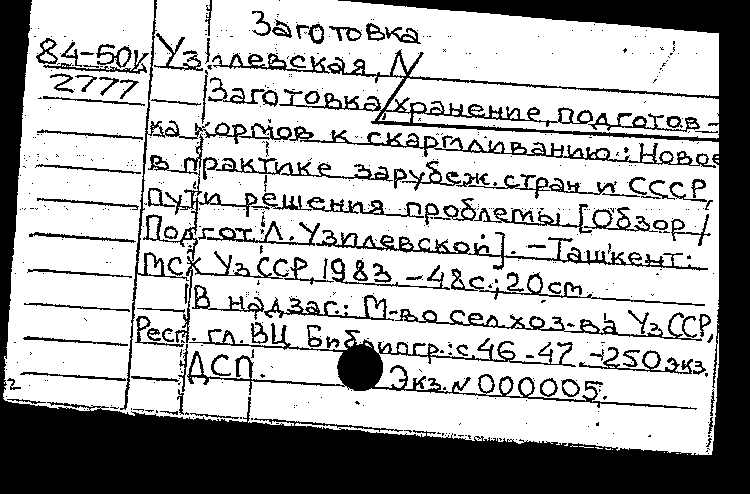 Заготовка
84-50к Узилевская, Л
2777 Заготовка, хранение, подготов-
ка кормов к скармливанию: Новое
в практике зарубеж. стран и СССР,
пути решения проблемы [Обзор /
Подгот. Л. Узилевской]. - Ташкент:
МСХ УзССР, 1983. - 48с.; 20см.
В надзаг.: М-во сел. хоз-ва УзССР,
Респ. гл. ВЦ Библиогр.: с. 46-47. - 250 экз.
ДСП. Экз. N 000005.
2